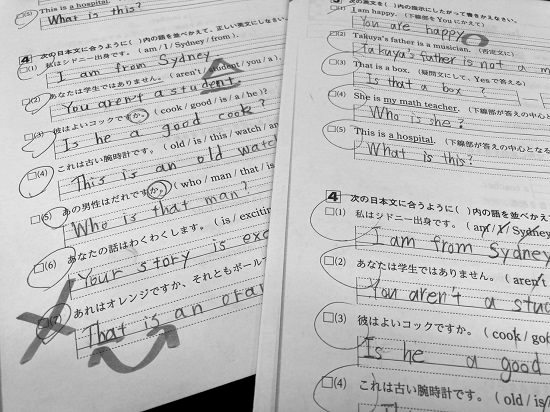 This is a hospital.
What is this?
4 次の日本文に合うように( )内の語を並べかえて、正しい英文にしなさい。
(1) 私はシドニー出身です。( am / I / Sydney / from ).
I am from Sydney
(2) あなたは学生ではありません。( aren't / student / you / a ).
You aren't a student.
(3) 彼はよいコックですか。( cook / good / is / a / he )?
Is he a good cook?
(4) これは古い腕時計です。( old / is / this / watch / an
This is an old watch
(5) あの男性はだれですか。( who / man / that / is
Who is that man?
(6) あなたの話はわくわくします。( is /
Your story is
(7) あれはオレンジですか、それともボール
That is an
(1) I am happy. (下線部を You にかえて)
You are happy
(2) Takuya's father is a musician. (否定文に)
Takuya's father is not a
(3) That is a box. (疑問文にして、Yes で答える)
Is that a box?
(4) She is my math teacher. (下線部が答えの中心と
Who is she?
(5) This is a hospital. (下線部が答えの中心となる
What is this?
4 次の日本文に合うように( )内の語を並べか
(1) 私はシドニー出身です。( am / I / Sydney
I am from Sydney
(2) あなたは学生ではありません。( aren't
You aren't a
(3) 彼はよいコックですか。( cook /
Is he a good
(4) これは古い腕時計です。( old / is /